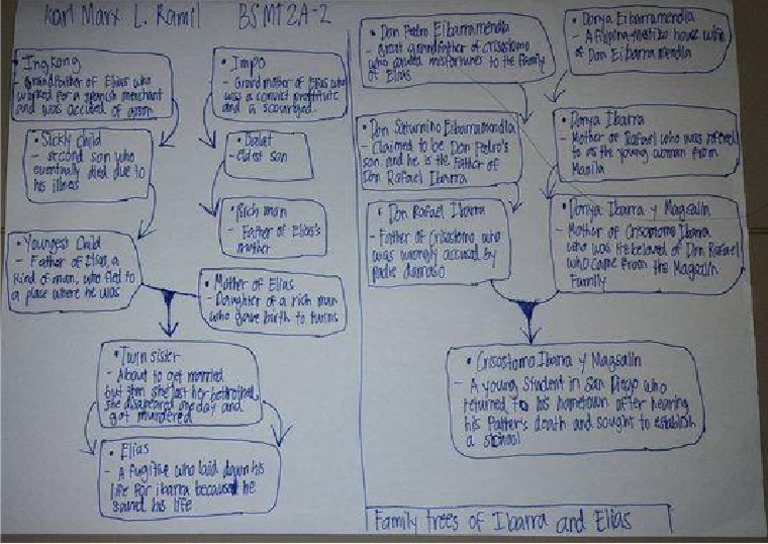 Karl Marx L. Ramil BSMT2A-2
• Ingkong
- Grandfather of Elias who
worked for a spanish merchant
and was accused of arson
• Impo
- Grand mother of Elias who
was a convict prostitute
and a scourged.
• Sickly child
- second son who
eventually died due to
his illness
• Balat
- eldest son
• Rich man
- Father of Elias's
mother
• Youngest Child
- Father of Elias, a
kind of man, who fled to
a place where he was
• Mother of Elias
- Daughter of a rich man
who gave birth to twins
• Twin sister
- About to get married
but then she lost her bethrothed,
she disapeared one day and
got murdered
• Elias
- A fugitive who laid down his
life for ibarra because he
saved his life
• Don Pedro Eibarramendia
- great grandfather of crisostomo
who caused misfortunes to the family
of Elias
• Donya Eibarramendia
- A filipina-Mestizo house wife
of Don Eibarramendia
• Don Saturnino Eibarramendia
- Claimed to be Don Pedro's
son and he is the father of
Don Rafael Ibarra
• Donya Ibarra
- Mother of Rafael who was refered
to as the young woman from
Manila
• Don Rafael Ibarra
- Father of Crisostomo, who
was wrongly accused by
padre damaso
• Donya Ibarra y Magsalin
- Mother of Crisostomo Ibarra
who was the beloved of Don Rafael
who came from the Magsalin
Family
• Crisostomo Ibarra y Magsalin
- A young student in San Diego who
returned to his hometown after hearing
his father's death and sought to establish
a school
Family trees of Ibarra and Elias